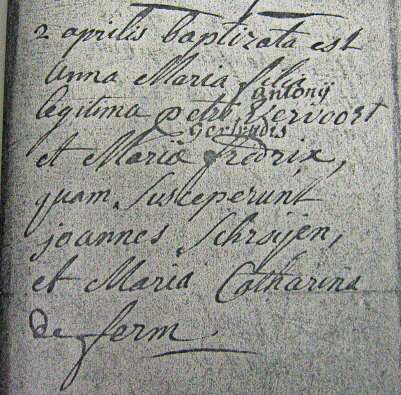 2 aprilis baptizata est
Anna Maria filia
antonij
legitima petri Vervoort
Gertrudis
et Mariæ fredrix,
quam Susceperunt
joannes Schroijen,
et Maria Catharina
de ferm.